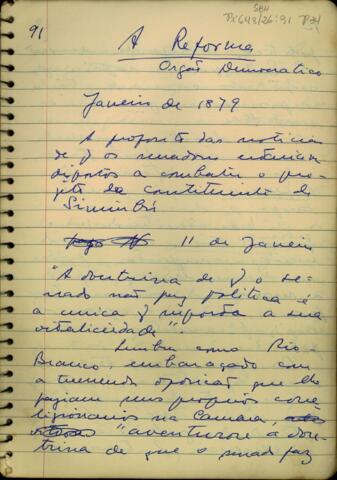 SBH
Pi 648/26:91 P34
91
A Reforma
Orgão Democratico
Janeiro de 1879
A proposito das noticias
de q os senadores estariam
dispostos a combater o pro-
jeto da constituinte de
Sinimbú
11 de Janeiro
"A doutrina de q o se-
nado não faz politica é
a unica q importa a sua
vitaliciedade".
Lembra como Rio
Branco, embaraçado com
a tremenda oposição que lhe
faziam seus proprios corre-
ligionarios na Camara,
"aventurou a dou-
trina de que o senado faz